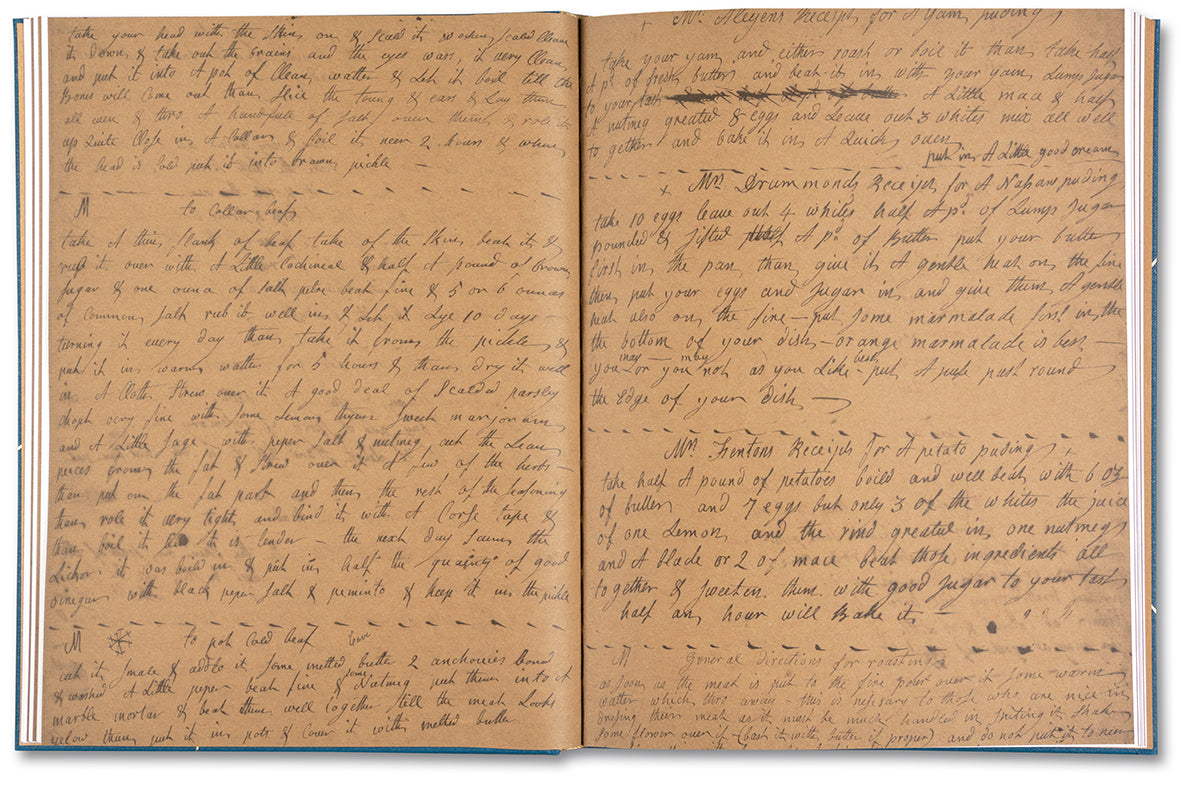 take your head with the Skin on & Scald it when Scald Cleane
it down & take out the brains and the eyes wash it very Clean
and put it into A pot of Clean watter & Let it boil till the
Bones will Come out than Slice the toung & ears & Lay them
all over & thro A handfull of Salt over them & role it
up Quite Close in A Collar & boil it neer 2 hours & when
the head is Cold put it into brown pickle —
M to Collar beaf
take A thin flank of beaf take of the Skin beat it &
rub it over with A Little Cochineal & half A pound of brown
Sugar & one ounce of Salt peter beat fine & 5 or 6 ounces
of Common Salt rub it well in & Let it Lye 10 days —
turning it every day than take it from the pickle &
put it in warm watter for 5 hours & than dry it well
in A Cloth Strew over it A good deal of Scalded parsley
Chopt very fine with Some Lemon thyme Sweet marjoram
and A Little Sage with peper Salt & nutmeg cut the Lean
pieces from the fat & Strew over it A few of the herbs —
than put on the fat part and then the rest of the Seasoning
than role it very tight and bind it with A Corse tape &
than boil it it is tender — the next day Scum the
Lickor it was boild in & put in half the quantity of good
vinegar with black peper Salt & peminto & keep it in the pickle
M to pot Cold beaf
cut it Smale & add to it Some melted butter 2 anchovies bond
& washd A Little peper beat fine & Some Nutmeg put them into A
marble mortar & beat them well together till the meat Looks
yelow than put it in pots & Cover it with melted butter
+ Mrs Alleyens Receipt for A Yam puding
take your yam and either roast or boil it than take half
A pd. of fresh butter and beat it in with your yam Lump Sugar
to your tast A Little mace & half
A nutmeg greated 8 eggs and Leave out 3 whites mix all well
to gether and bake it in A Quick oven
put in A Little good cream
+ Mrs Drummonds Receipt for A Nasaw puding
take 10 eggs leave out 4 whites half A pd. of Lump Sugar
pounded & Sifted half A pd. of Butter put your butter
first in the pan than give it A gentle heat on the fire
then put your eggs and Sugar in and give them A gentle
heat also on the fire — put Some marmalade first in the
the bottom of your dish — orange marmalade is best —
you may or you may not as you Like best — put A pufe past round
the edge of your dish —
Mrs Fentons Receipt for A petato puding +
take half A pound of petatoes boild and well beat with 6 oz
of butter and 7 eggs but only 3 of the whites the juice
of one Lemon and the rind greated in one nutmeg
and A blade or 2 of mace beat those ingredients all
to gether & Sweeten them with good Sugar to your tast
half an hour will Bake it
M General directions for roasting
as Soon as the meat is put to the fire poor over it Some warm
watter which thro away — this is nessary to those who are nice in
draping their meat as it must be much handled in Spiting it Shake
Some flower over it (bast it with butter if proper) and do not put it to neer